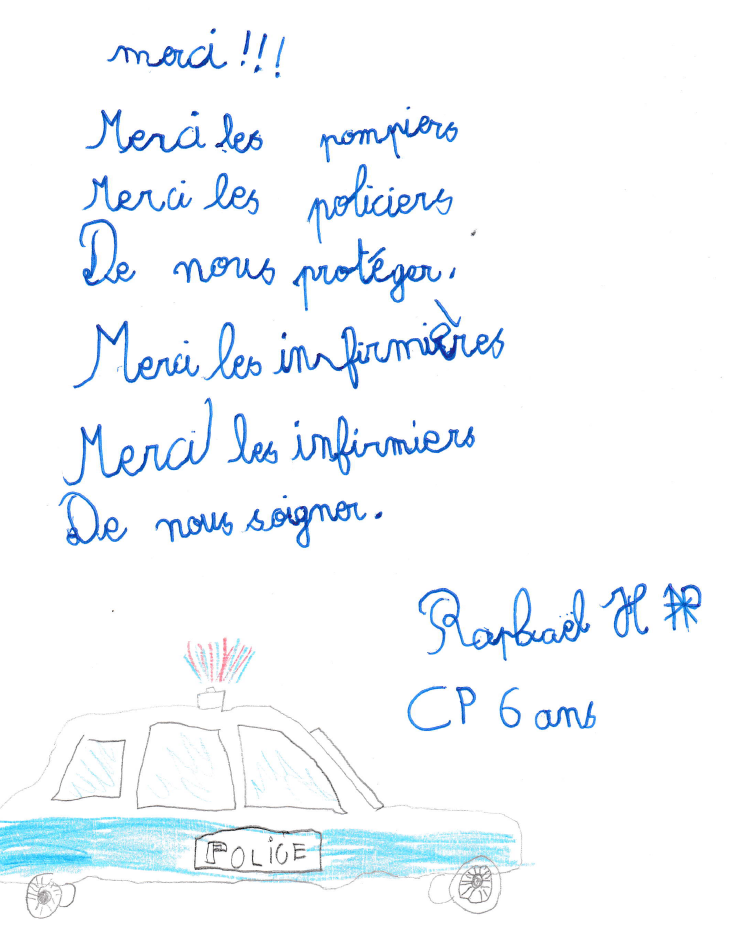 merci !!!
Merci les pompiers
Merci les policiers
De nous protéger.
Merci les infirmières
Merci les infirmiers
De nous soigner.
Raphaël H
CP 6 ans
POLICE